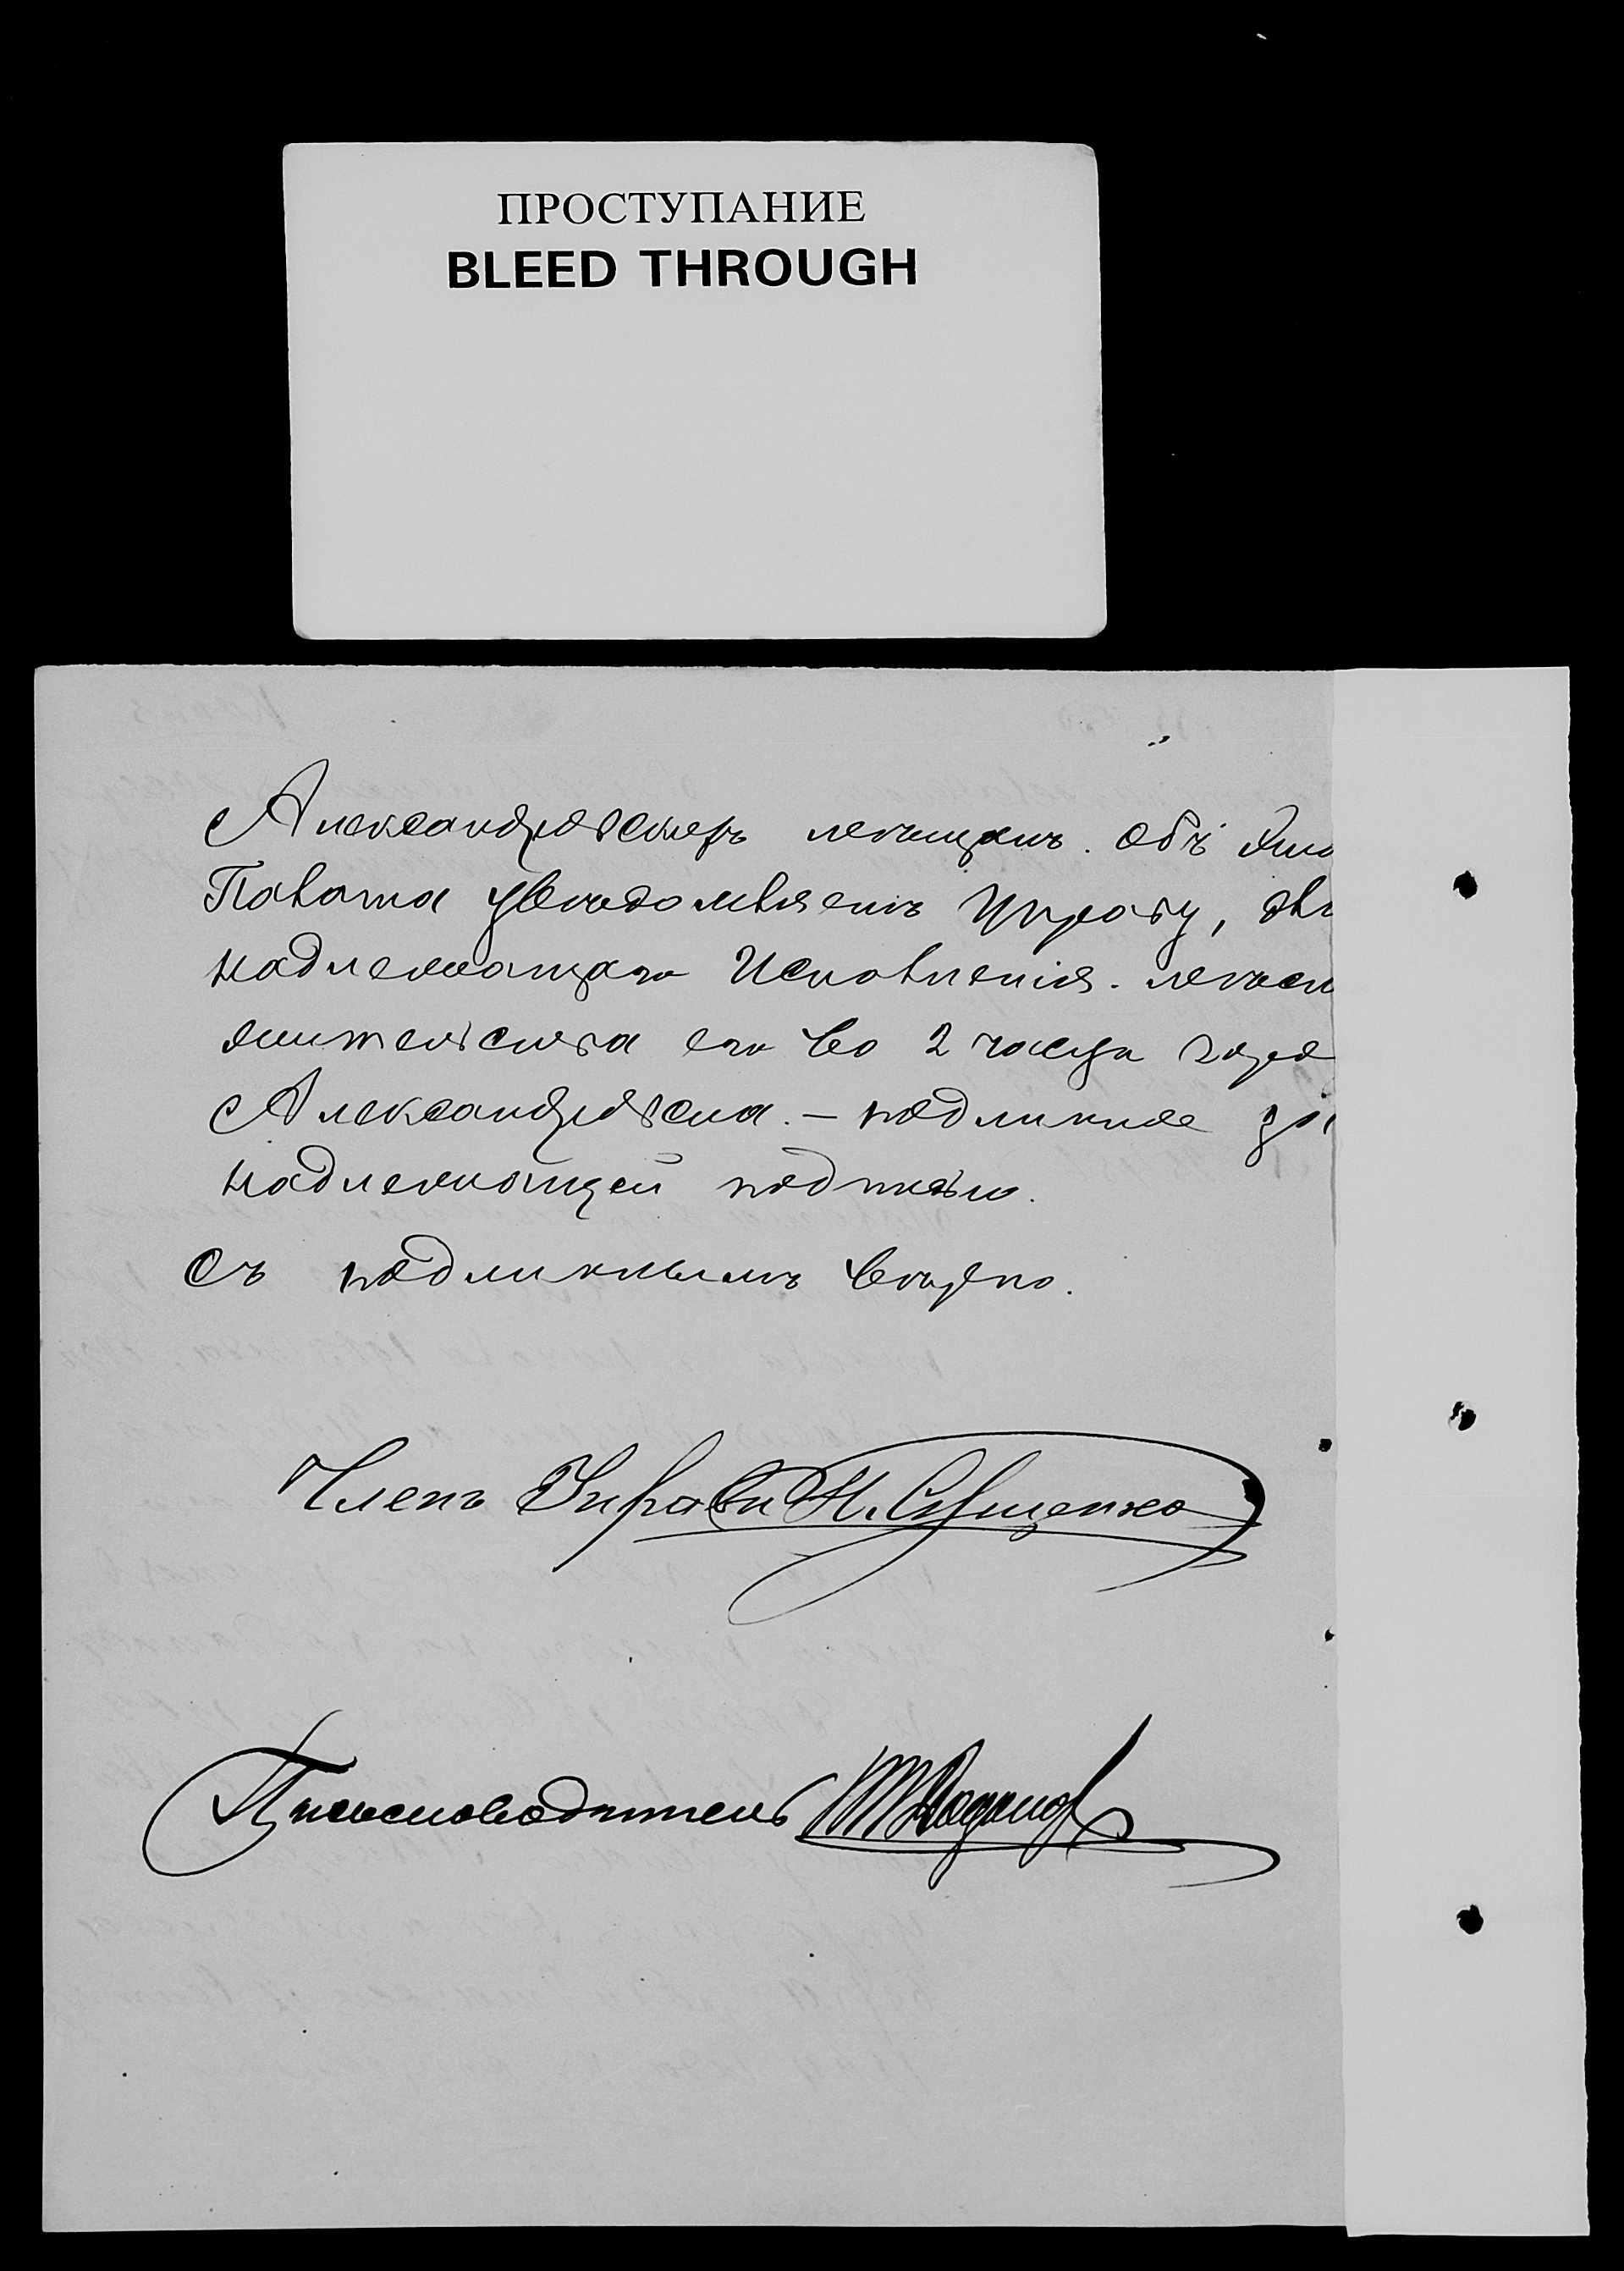 ПРОСТУПАНИЕ
BLEED THROUGH
Александровскъ мѣщанъ. Объ
Палата увѣдомляетъ Управу, для
надлежащаго Исполненія.
жительства его во 2 части
Александровска. — подлинное за
надлежащей подписью.
Съ подлиннымъ вѣрно.
Членъ Управы Н. Сѣщенко
Письмоводитель